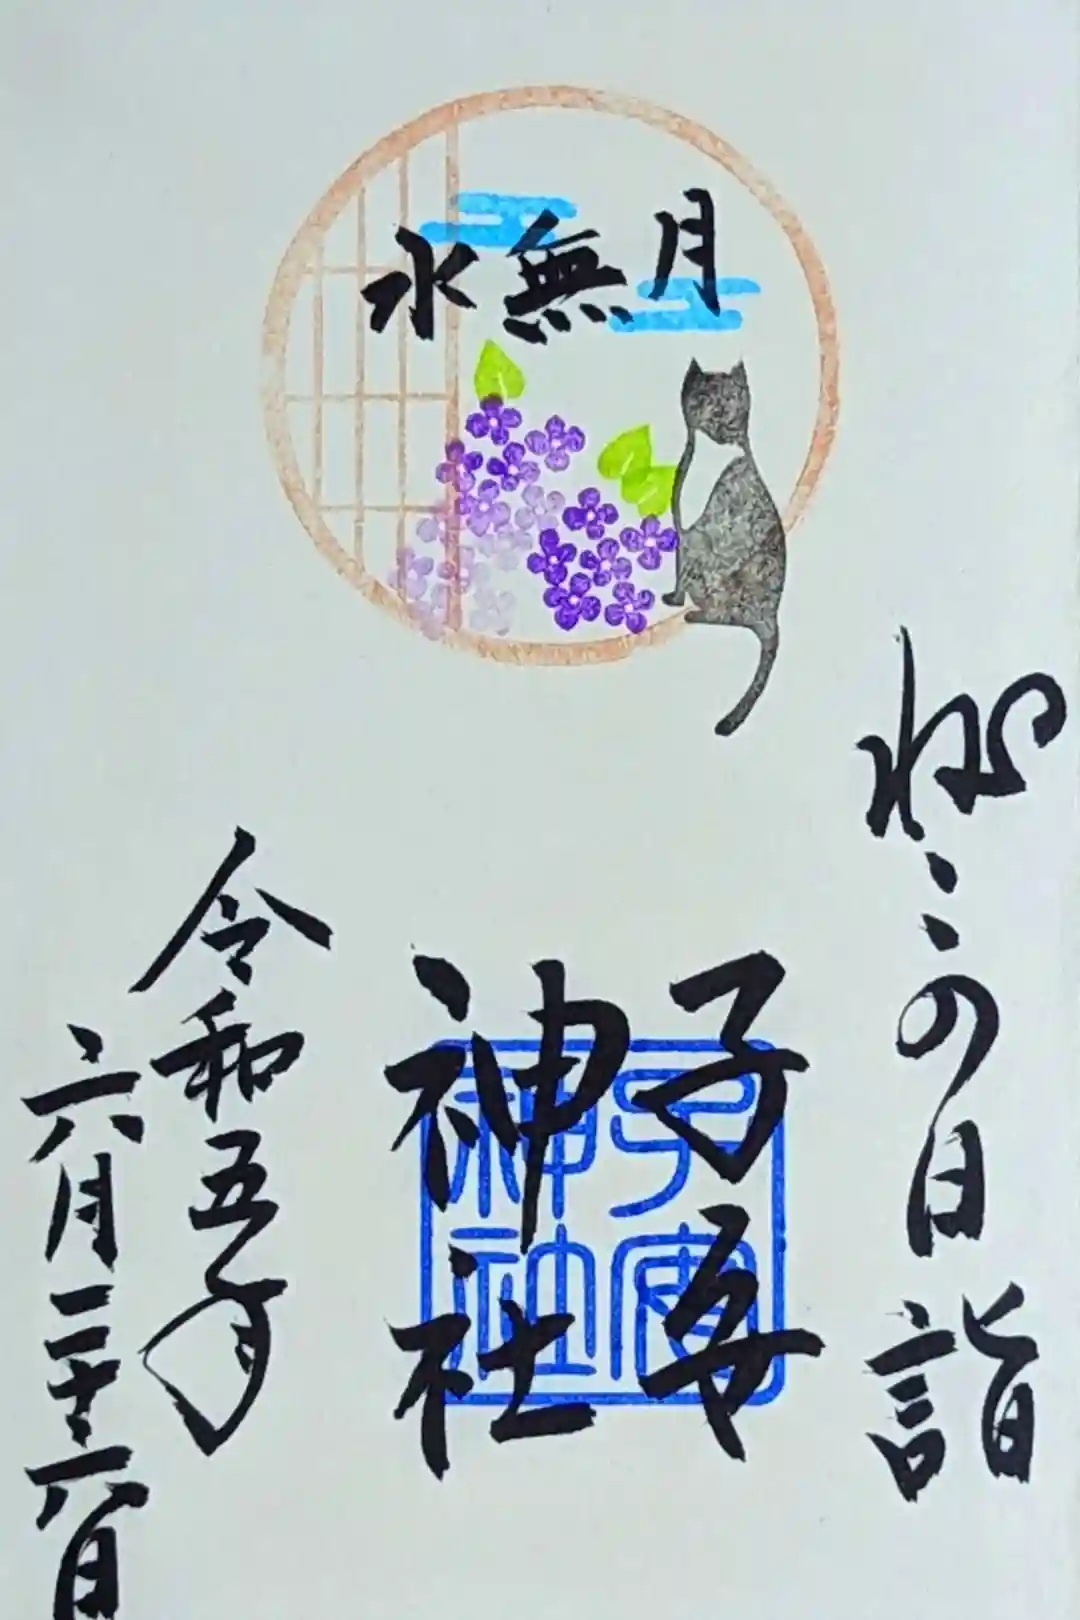 水無月
ねこの日詣
子安
神社
子安
神社
令和五年
六月二十六日